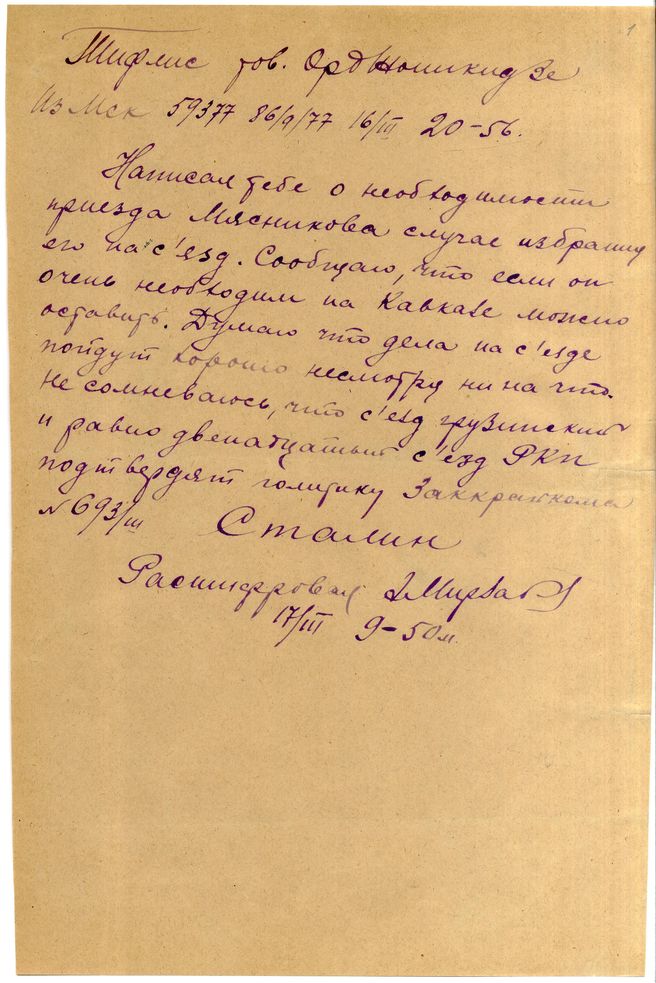 1
Тифлис тов. Орджоникидзе
Из Мск 59377 86/9/77 16/III 20-56.
Написал тебе о необходимости
приезда Мясникова случае избрания
его на с'езд. Сообщаю, что если он
очень необходим на Кавказе можно
оставить. Думаю что дела на с'езде
пойдут хорошо несмотря ни на что.
не сомневаюсь, что с'езд грузинский
и равно двенадцатый с'езд РКП
подтвердят политику Заккрайкома
N 693/ш Сталин
Расшифровал
17/III 9-50м.